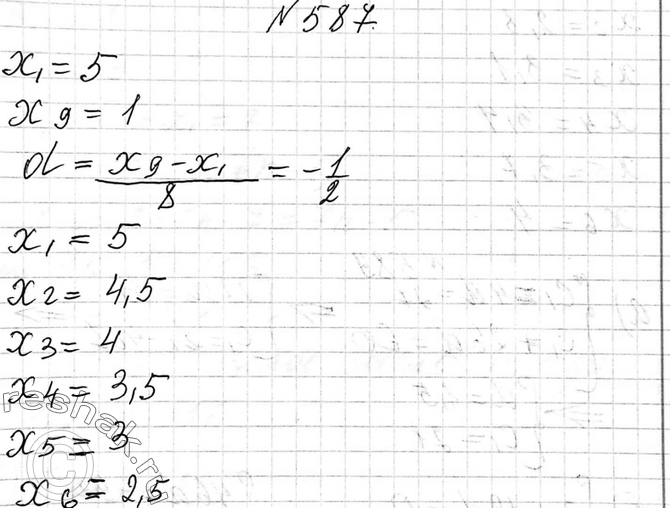 N 587.
x1 = 5
x9 = 1
d = (x9 - x1)/8 = -1/2
x1 = 5
x2 = 4,5
x3 = 4
x4 = 3,5
x5 = 3
x6 = 2,5
reshak.ru